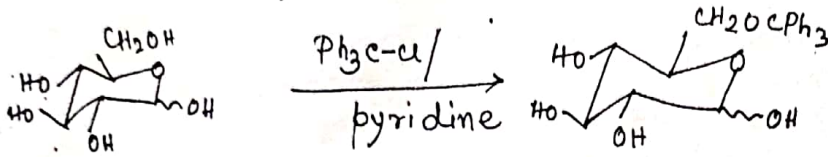 CH₂OH
O
HO
HO
OH
OH
Ph₃C-Cl/
pyridine
CH₂OCPh₃
O
HO
HO
OH
OH